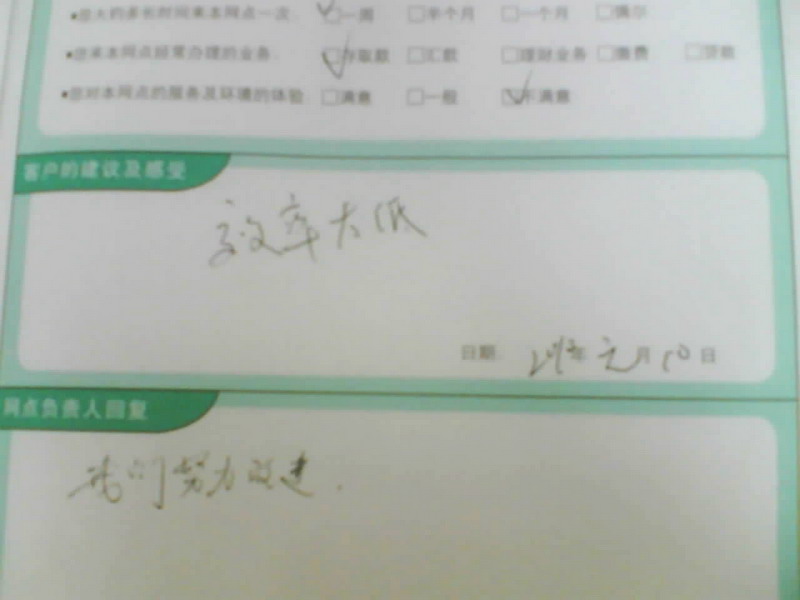 •您大约多长时间来本网点一次 □一周 □半个月 □一个月 □偶尔
•您来本网点经常办理的业务 □存取款 □汇款 □理财业务 □缴费 □贷款
•您对本网点的服务及环境的体验 □满意 □一般 □不满意
客户的建议及感受
效率太低
日期 年 元月10日
网点负责人回复
我们努力改进.